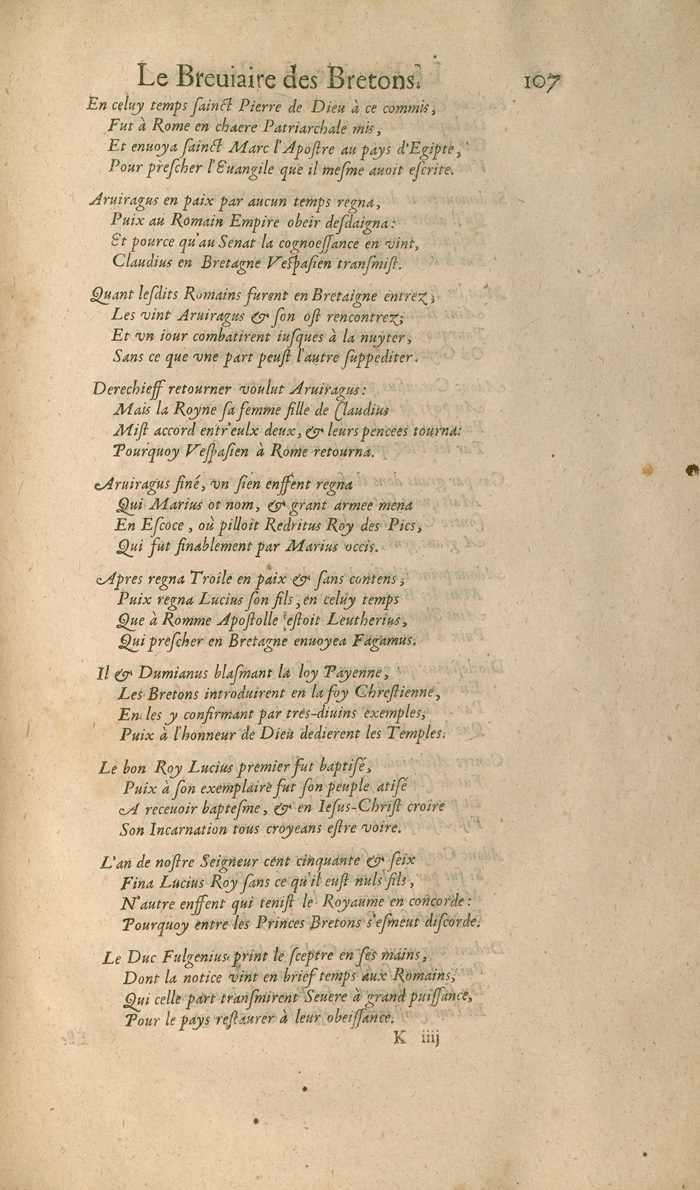 Le Breuiaire des Bretons. 107
En celuy temps ſainct Pierre de Dieu à ce commis,
Fut à Rome en chaere Patriarchale mis,
Et enuoya ſainct Marc l'Apoſtre au pays d'Egipte,
Pour preſcher l'Euangile que il meſme auoit eſcrite.
Aruiragus en paix par aucun temps regna,
Puix au Romain Empire obeir deſdaigna:
Et pource qu'au Senat la cognoeſſance en vint,
Claudius en Bretagne Veſpaſien tranſmiſt.
Quant leſdits Romains furent en Bretaigne entrez,
Les vint Aruiragus & ſon oſt rencontrez;
Et vn iour combatirent iuſques à la nuyter,
Sans ce que vne part peuſt l'autre ſuppediter.
Derechieff retourner voulut Aruiragus:
Mais la Royne ſa femme fille de Claudius
Miſt accord entr'eulx deux, & leurs pencees tourna:
Pourquoy Veſpaſien à Rome retourna.
Aruiragus finé, vn ſien enffent regna
Qui Marius ot nom, & grant armee mena
En Eſcoce, où pilloit Redritus Roy des Pics,
Qui fut finablement par Marius occis.
Apres regna Troile en paix & ſans contens,
Puix regna Lucius ſon fils, en celuy temps
Que à Romme Apoſtolle eſtoit Leutherius,
Qui preſcher en Bretagne enuoyea Fagamus.
Il & Dumianus blaſmant la loy Payenne,
Les Bretons introduirent en la foy Chreſtienne,
En les y confirmant par tres-diuins exemples,
Puix à l'honneur de Dieu dedierent les Temples.
Le bon Roy Lucius premier fut baptiſé,
Puix à ſon exemplaire fut ſon peuple atiſé
A receuoir bapteſme, & en Ieſus-Chriſt croire
Son Incarnation tous croyeans eſtre voire.
L'an de noſtre Seigneur cent cinquante & ſeix
Fina Lucius Roy ſans ce qu'il euſt nuls fils,
N'autre enffent qui teniſt le Royaume en concorde:
Pourquoy entre les Princes Bretons s'eſmeut diſcorde.
Le Duc Fulgenius print le ſceptre en ſes mains,
Dont la notice vint en brief temps aux Romains,
Qui celle part tranſmirent Seuere à grand puiſſance,
Pour le pays reſtaurer à leur obeiſſance.
K iiij